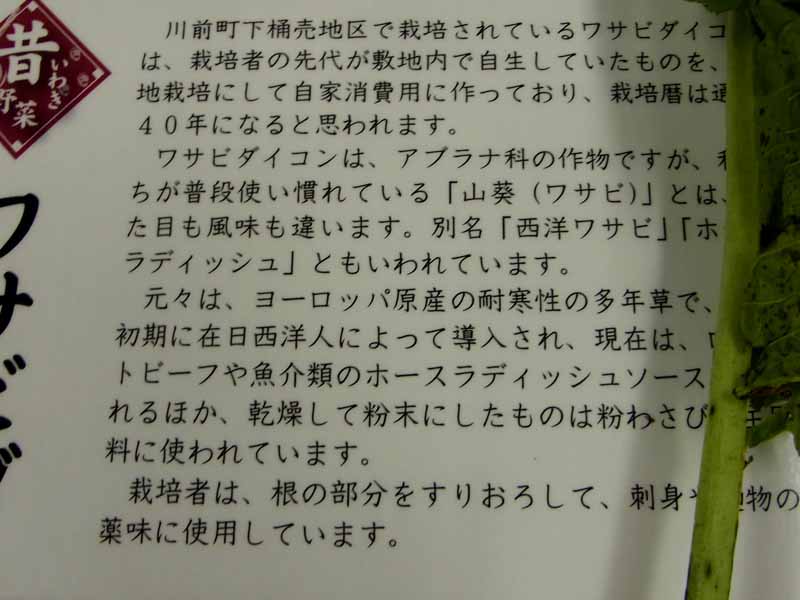 昔
いわき
野菜
ワサビダ
川前町下桶売地区で栽培されているワサビダイコ
は、栽培者の先代が敷地内で自生していたものを、
地栽培にして自家消費用に作っており、栽培暦は
４０年になると思われます。
ワサビダイコンは、アブラナ科の作物ですが、
ちが普段使い慣れている「山葵（ワサビ）」とは、
た目も風味も違います。別名「西洋ワサビ」「ホ
ラディッシュ」ともいわれています。
元々は、ヨーロッパ原産の耐寒性の多年草で、
初期に在日西洋人によって導入され、現在は、
トビーフや魚介類のホースラディッシュソース
れるほか、乾燥して粉末にしたものは粉わさび
料に使われています。
栽培者は、根の部分をすりおろして、刺身や 物の
薬味に使用しています。